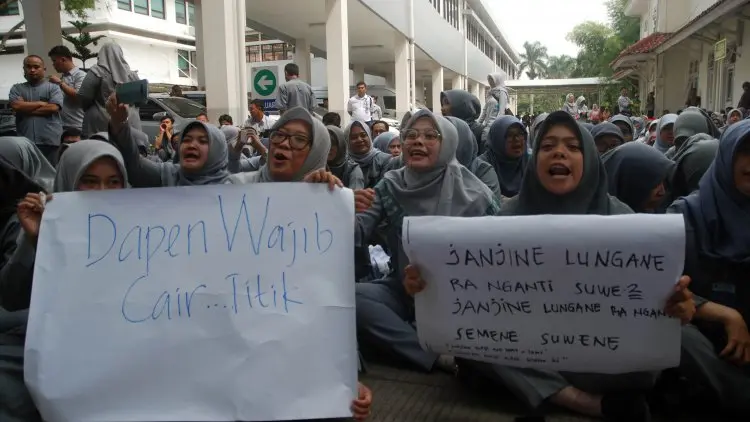 Dapen Wajib
Cair...Titik
JANJINE LUNGANE
RA NGANTI SUWE2
JANJINE LUNGANE RA NGAN
SEMENE SUWENE